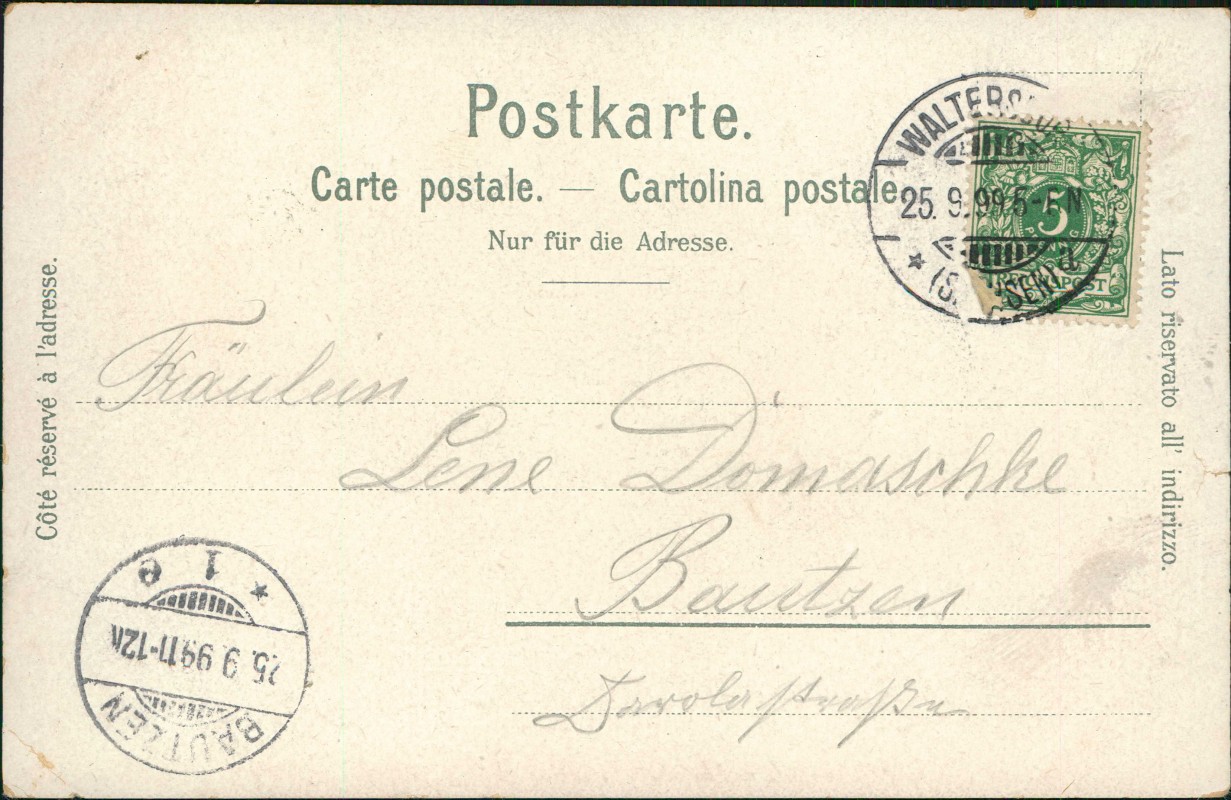 Postkarte.
Carte postale. — Cartolina postale.
Nur für die Adresse.
Côté réservé à l'adresse.
Lato riservato all' indirizzo.
25. 9. 99 5-6N
5
REICHSPOST
Fräulein
Lene Domaschke
Bautzen
Carolastraße
* 1 e
25. 9 99 11-12N
BAUTZEN